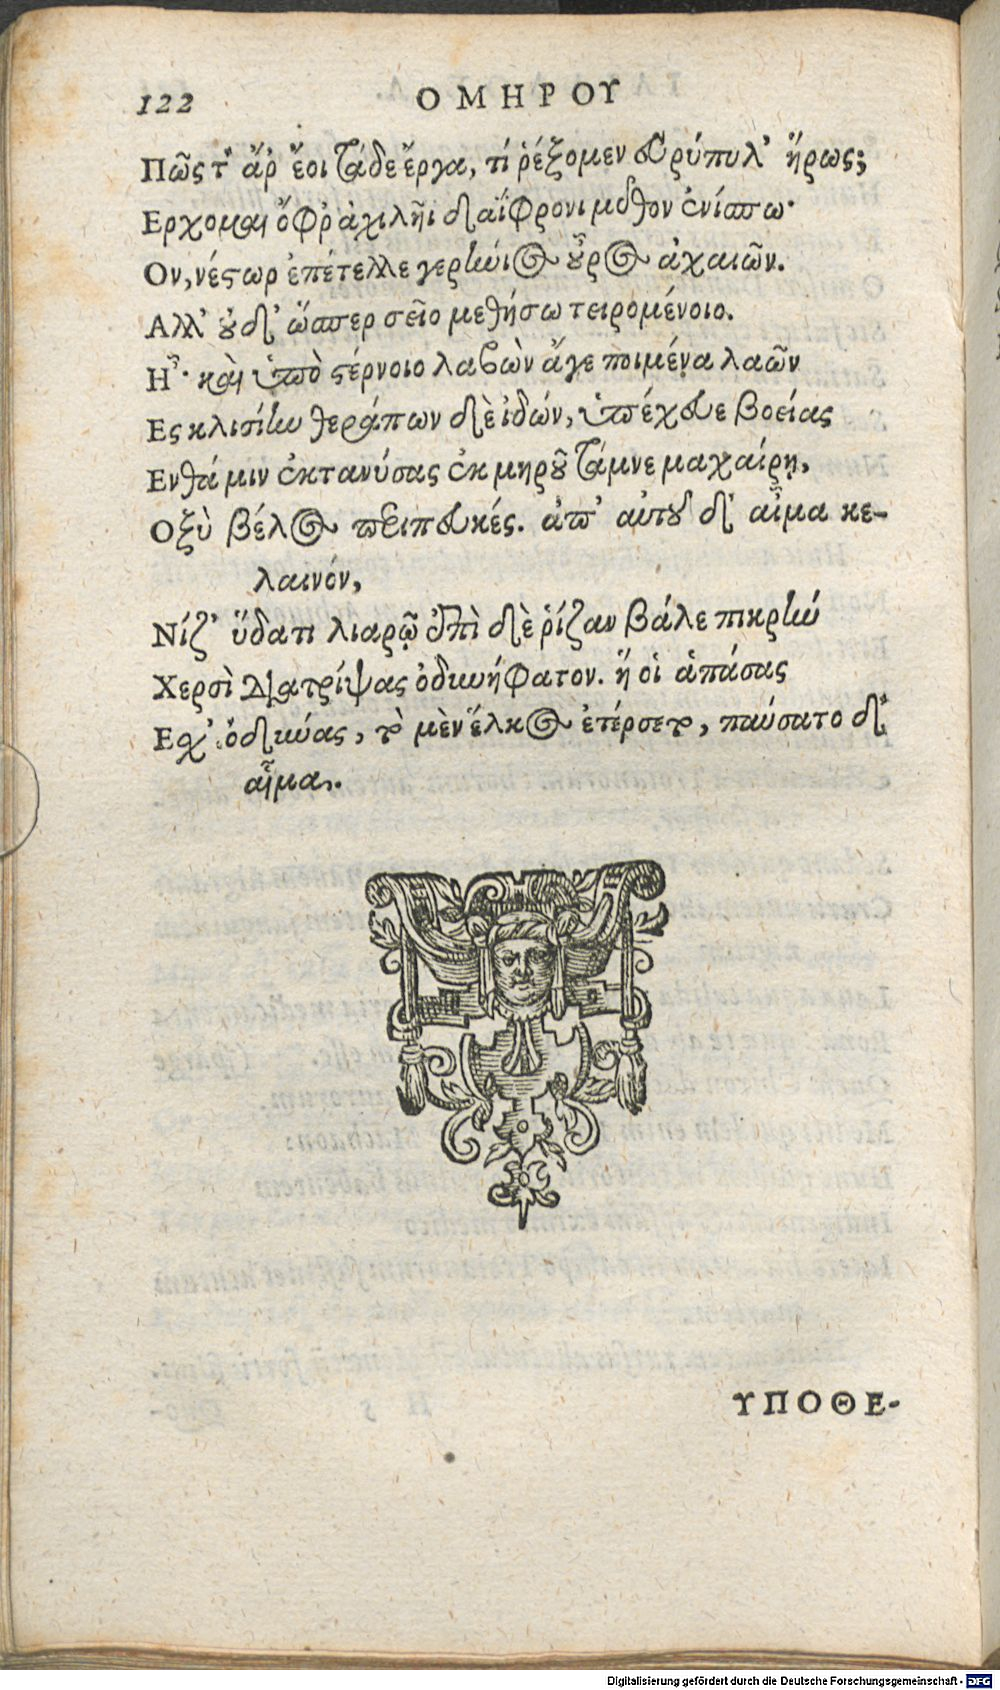 122 ΟΜΗΡΟΥ
Πῶς τ' ἄρ ἔοι τάδε ἔργα, τί ῥέξομεν Εὐρύπυλ' ἥρως;
Ερχομαι ὄφρ' ἀχιλῆϊ δαΐφρονι μῦθον ἐνίσπω·
Ον, νέστωρ ἐπέτελλε γερήνιος οὖρος ἀχαιῶν.
Αλλ' οὐδ' ὥσπερ σεῖο μεθήσω τειρομένοιο.
Η῏· καὶ ὑπὸ στέρνοιο λαβὼν ἄγε ποιμένα λαῶν
Ες κλισίην θεράπων δὲ ἰδών, ὑπέχευε βοείας
Ενθά μιν ἐκτανύσας ἐκ μηροῦ τάμνε μαχαίρῃ,
Οξὺ βέλος περιπευκές. ἀπ' αὐτοῦ δ' αἷμα κε-
λαινόν,
Νίζ' ὕδατι λιαρῷ ἐπὶ δὲ ῥίζαν βάλε πικρήν
Χερσὶ διατρίψας ὀδυνήφατον. ἥ οἱ ἁπάσας
Εσχ' ὀδύνας, τὸ μὲν ἕλκος ἐτέρσετο, παύσατο δ'
αἷμα.
ΥΠΟΘΕ-
Digitalisierung gefördert durch die Deutsche Forschungsgemeinschaft - DFG